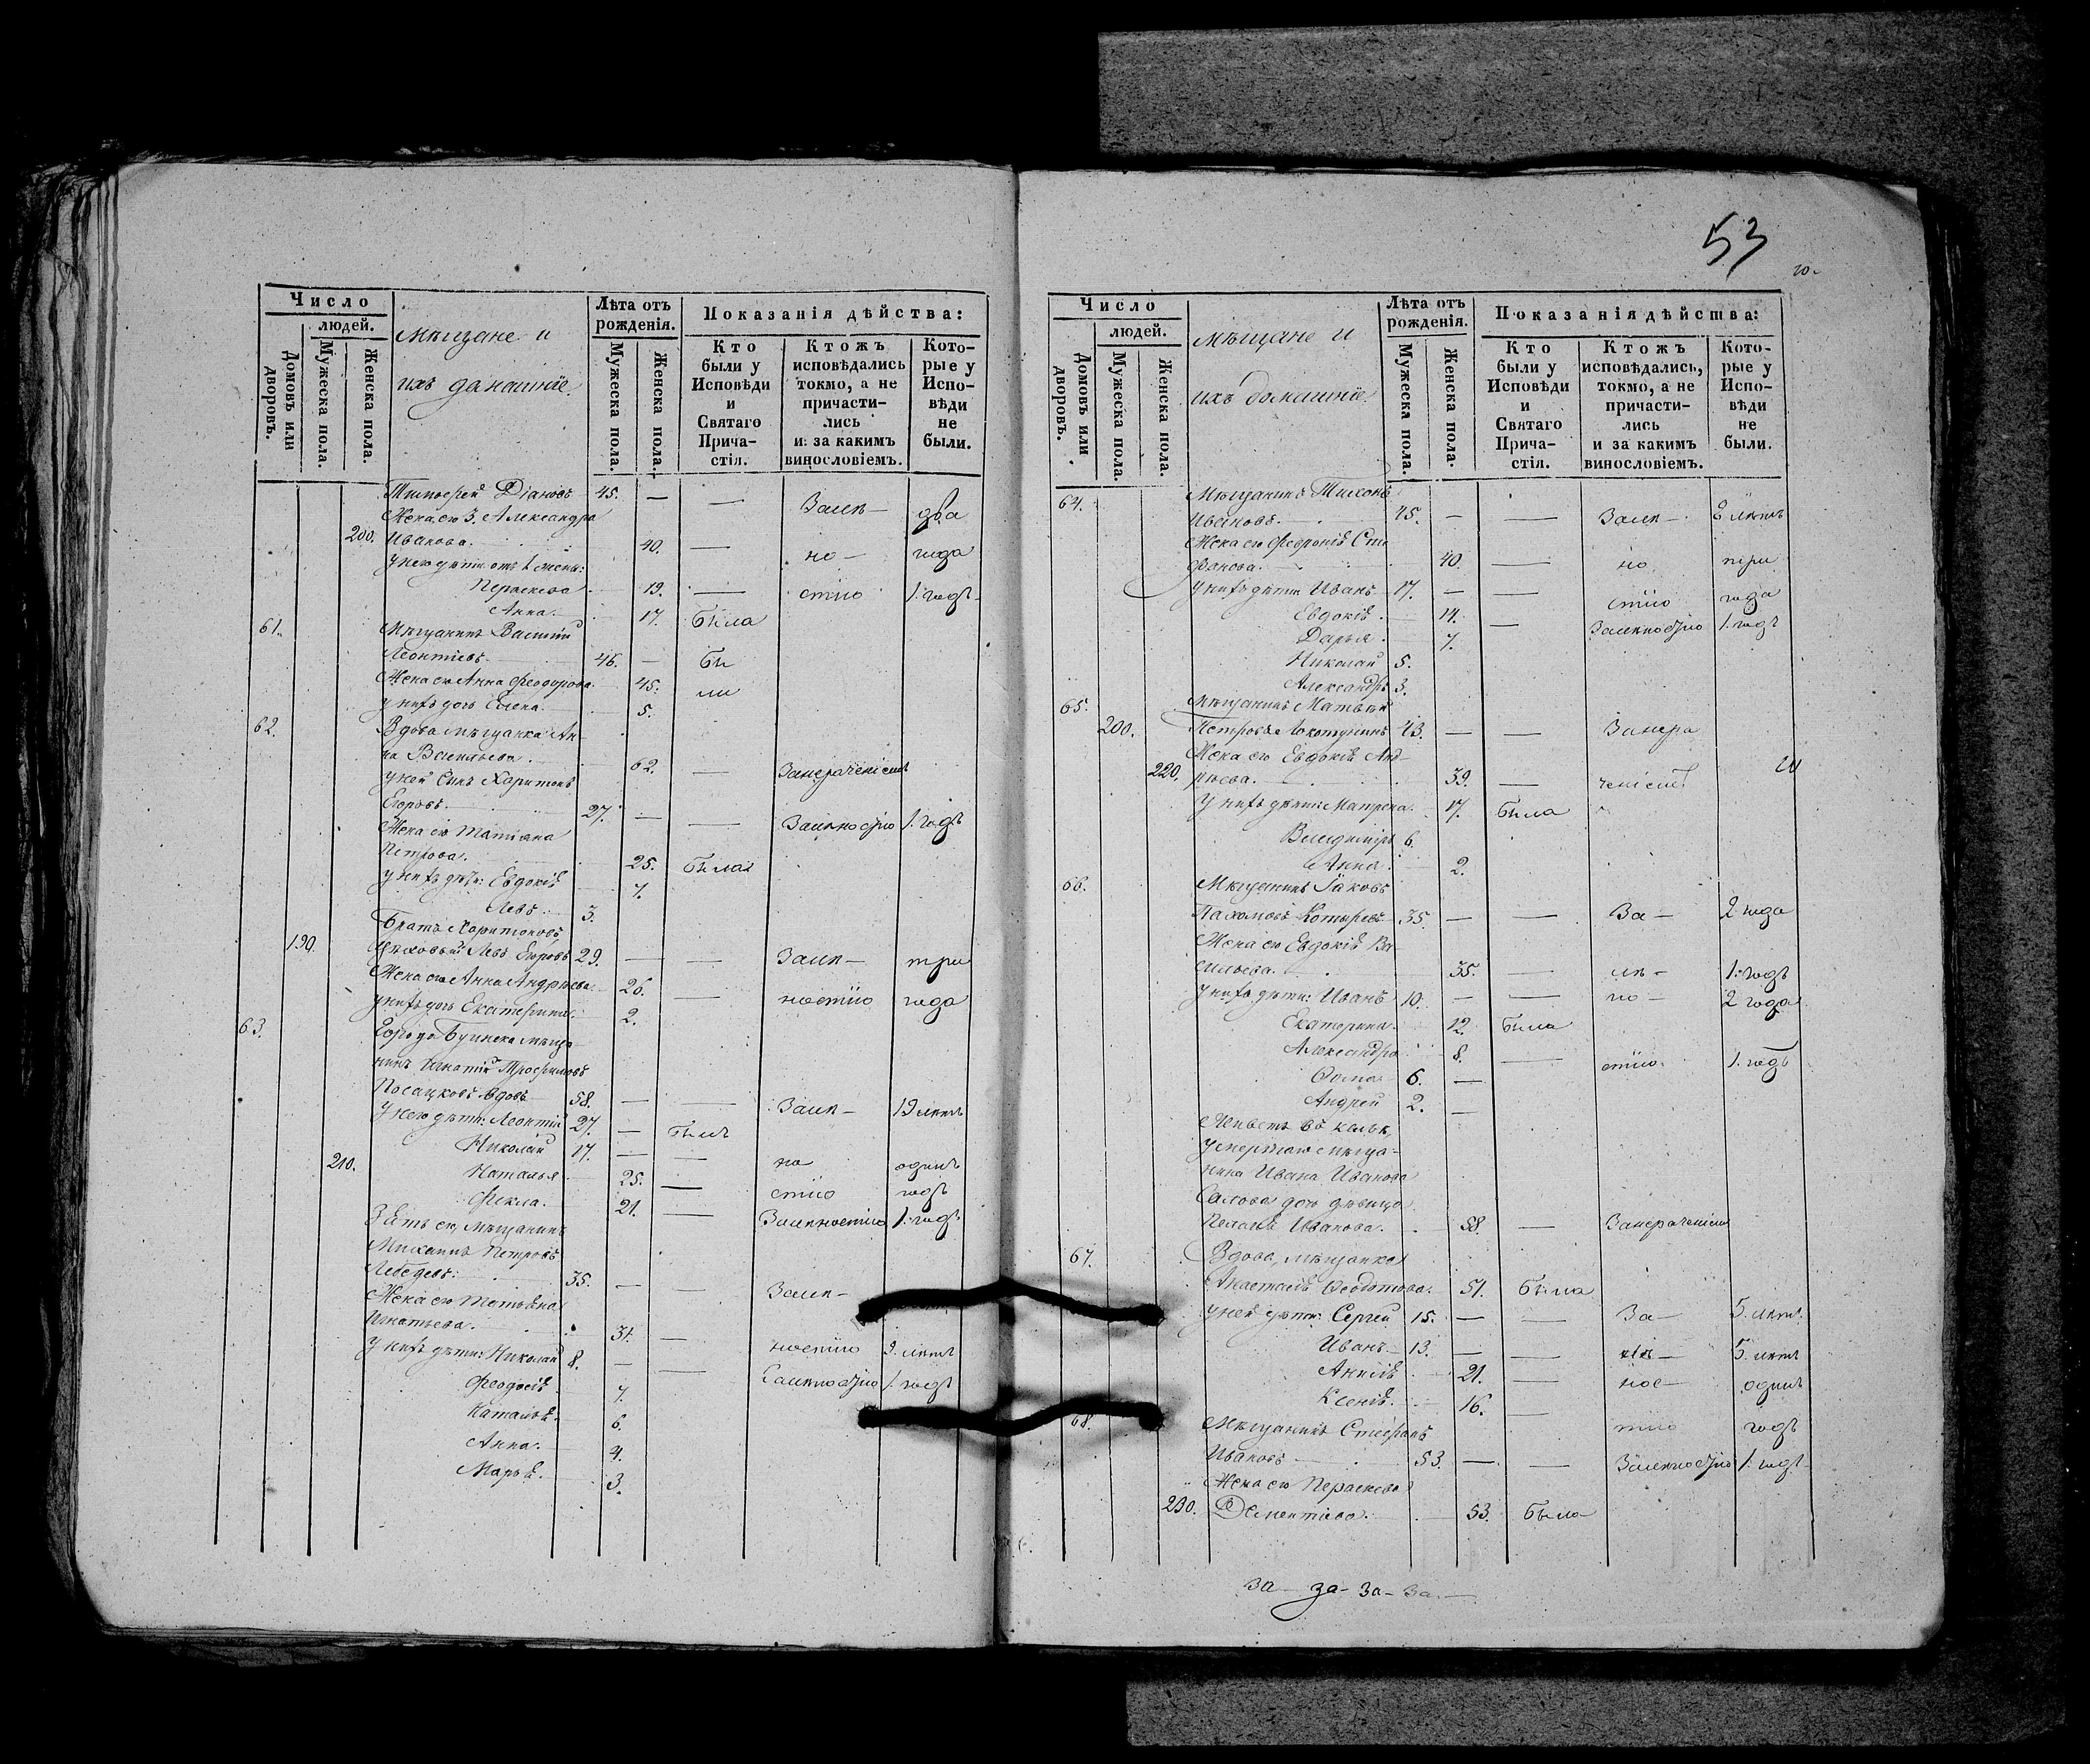 Число
людей.
Домовъ или дворовъ.
Мужеска пола.
Женска пола.
Мѣщане и
ихъ домашніе.
Лѣта отъ рожденія.
Мужеска пола.
Женска пола.
Показанія дѣйства:
Кто были у Исповѣди и Святаго Прича- стія.
Ктожъ исповѣдались токмо, а не причасти- лись и: за какимъ винословіемъ.
Кото- рые у Испо- вѣди не были.
Тимофей Діановъ 45. — — Залѣ— два
Жена его 3. Александра
200. Иванова. 40. — но— года
у него дѣти отъ 1 жены:
Пераскева 19. — стію 1. годъ
Анна. 17. Была
61. Мѣщанинъ Василій
Леонтіевъ 46. — Бы
Жена его Анна Феодорова. 45. ли
у нихъ дочь Елена. 5.
62. Вдова мѣщанка Ан-
на Васильева. 62. — Занераченіемъ
у ней сынъ Харитонъ
Егоровъ. 27. — — Залѣностію 1. годъ
Жена его Татіана
Петрова. 25. Была
у нихъ дѣти: Евдокіѣ 7.
Левъ 3.
Братъ Харитоновъ
190. Цѣховый Левъ Егоровъ 29. — — Залѣ— три
Жена его Анна Андрѣева 26. — ностію года
у нихъ дочь Екатерина. 2.
63. Города Буинска мѣща-
нинъ Игнатій Трофимовъ
Посацковъ вдовъ 58. — — Залѣ— 19 лѣтъ
У него дѣти: Леонтій 27. — Былъ
Николай 17. — — но одинъ
210. Наталья 25. — стію годъ
Фекла. 21. — Залѣностію 1. годъ
Зять ею мѣщанинъ
Михаилъ Петровъ
Лебедевъ. 35. — — Залѣ-
Жена его Татьяна
Игнатьева. 31. — ностію 9. лѣтъ
У нихъ дѣти: Николай 8. — Залѣностію 1. годъ
Феодосіѣ 7.
Натальѣ. 6.
Анна. 4.
Марьѣ. 3.
53
Число
людей.
Домовъ или дворовъ.
Мужеска пола.
Женска пола.
Мѣщане и
ихъ домашніе.
Лѣта отъ рожденія.
Мужеска пола.
Женска пола.
Показанія дѣйства:
Кто были у Исповѣди и Святаго Прича- стія.
Ктожъ исповѣдались, токмо, а не причасти- лись и за какимъ винословіемъ.
Кото- рые у Испо- вѣди не были.
64. Мѣщанинъ Тихонъ
Ивановъ. 45. — — Залѣ— 8 лѣтъ
Жена его Феѵроніѣ Сте
фанова. 40. — но три
У нихъ дѣти Иванъ 17. — — стію года
Евдокіѣ 14. — Залѣностію 1. годъ
Дарья 7.
Николай 5.
Александръ 3.
65. Мѣщанинъ Матвѣй
200. Петровъ 43. — — Занера
Жена его Евдокіѣ Анд-
220. рѣева. 39. — ченіемъ
У нихъ дѣти: Матрена. 17. Была
Владиміръ 6.
Анна 2.
66. Мѣщанинъ Іаковъ
Пахомовъ Котыревъ 35. — — За— 2 года
Жена его Евдокіѣ Ва-
сильева. 35. — лѣ— 1. годъ
У нихъ дѣти: Иванъ 10. — — но— 2 года
Екатерина. 12. Была
Александра 8. — стію 1. годъ
Ѳома 6. —
Андрей 2. —
Живетъ въ
умершаго мѣща-
нина Ивана Иванова
Салова дочь дѣвица
Пелагіѣ Иванова. 58. — Занераченіемъ
67. Вдова мѣщанка
Анастасіѣ Ѳедотова. 51. Была
У ней дѣти: Сергей 15. — — За— 5. лѣтъ
Иванъ 13. — — лѣ— 5. лѣтъ
Анисіѣ 21. — нос— одинъ
Ксеніѣ. 16. — тію годъ
68. Мѣщанинъ Стефанъ
Ивановъ 53. — — Залѣностію 1. годъ
Жена его Пераскева
230. Дементіева. 53. Была
за— за— за— за—